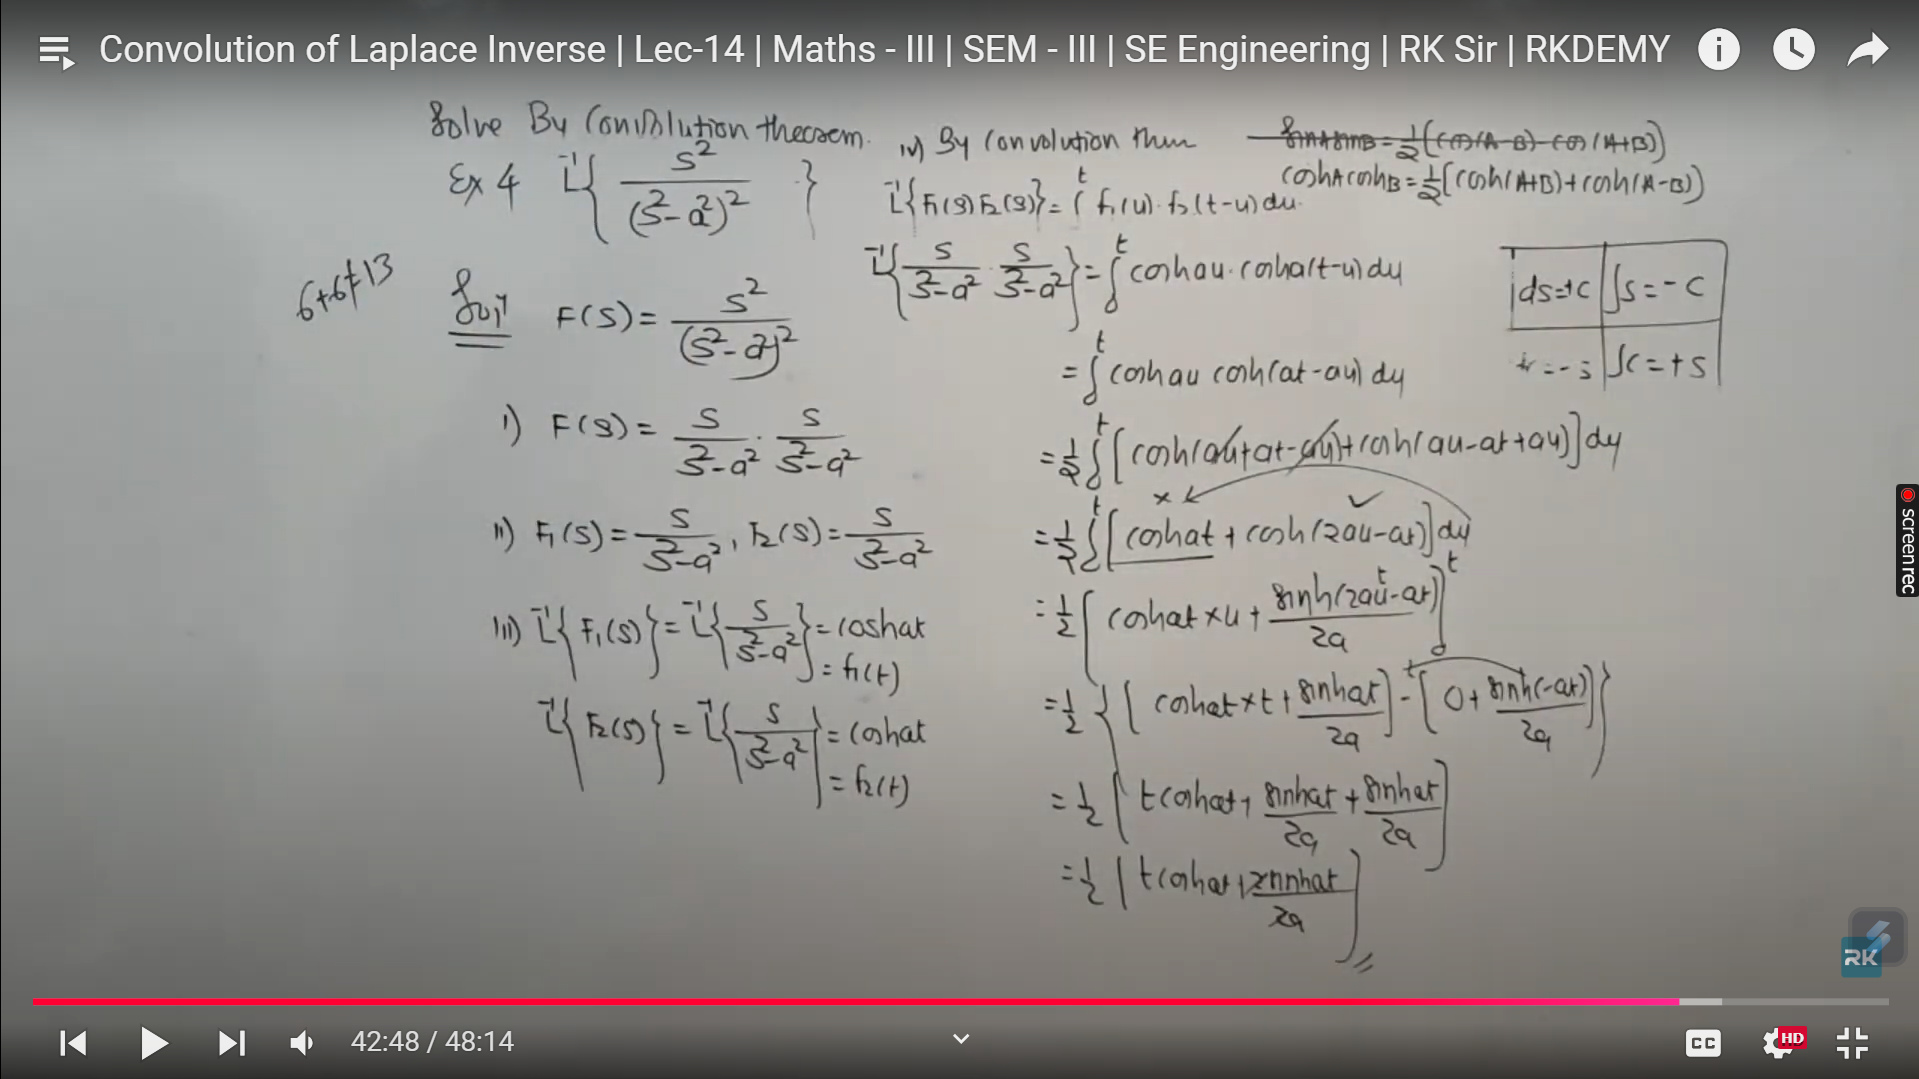 Convolution of Laplace Inverse | Lec-14 | Maths - III | SEM - III | SE Engineering | RK Sir | RKDEMY
Solve By Convolution theorem.
Ex 4 L⁻¹{ s² / (s²-a²)² }
6+6+13
Solⁿ F(s) = s² / (s²-a²)²
i) F(s) = s/(s²-a²) · s/(s²-a²)
ii) F₁(s) = s/(s²-a²), F₂(s) = s/(s²-a²)
iii) L⁻¹{F₁(s)} = L⁻¹{s/(s²-a²)} = coshat
= f₁(t)
L⁻¹{F₂(s)} = L⁻¹{s/(s²-a²)} = coshat
= f₂(t)
iv) By convolution thm
L⁻¹{F₁(s) F₂(s)} = ∫₀ᵗ f₁(u)·f₂(t-u) du
L⁻¹{s/(s²-a²) · s/(s²-a²)} = ∫₀ᵗ coshau·cosha(t-u) du
= ∫₀ᵗ coshau cosh(at-au) du
= 1/2 ∫₀ᵗ [cosh(au+at-au)+cosh(au-at+au)] du
= 1/2 ∫₀ᵗ [coshat + cosh(2au-at)] du
= 1/2 [coshat×u + sinh(2au-at)/2a]₀ᵗ
= 1/2 {[coshat×t + sinhat/2a] - [0 + sinh(-at)/2a]}
= 1/2 [tcoshat + sinhat/2a + sinhat/2a]
= 1/2 [tcoshat + 2sinhat/2a]
sinAsinB = 1/2 (cos(A-B)-cos(A+B))
coshAcoshB = 1/2 [cosh(A+B)+cosh(A-B)]
ds=+c ∫s=-c
=-s ∫c=+s
screen rec
RK
42:48 / 48:14
CC
HD